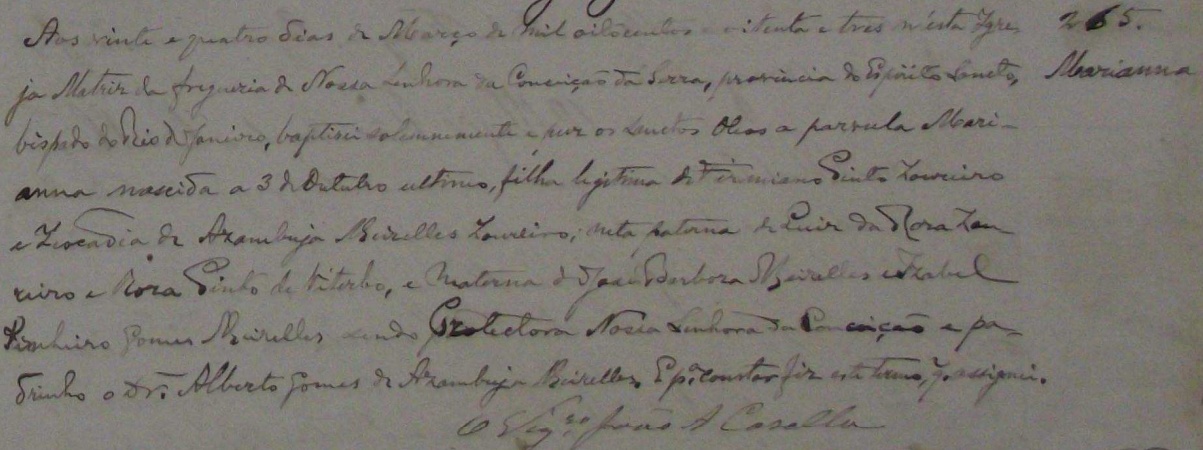 Aos vinte e quatro dias de Março de mil oitocentos e oitenta e tres n'esta Igre-
265.
ja Matriz da freguezia de Nossa Senhora da Conceição da Serra, provincia do Espirito Sancto,
Marianna
bispado do Rio de Janeiro, baptizei solemnemente e puz os Sanctos Oleos a parvula Mari-
anna nascida a 3 de Outubro ultimo, filha legitima de Firmiano Pinto Loureiro
e Leocadia de Azambuja Meirelles Loureiro; neta paterna de Luiz da Roza Lou
reiro e Roza Pinto de Viterbo, e materna de José Barboza Meirelles e Izabel
Pinheiro Gomes Meirelles sendo Protectora Nossa Senhora da Conceição e pa-
drinho o Dr. Alberto Gomes de Azambuja Meirelles. E pa. constar fiz este termo, q. assignei.
O Vigro. João A